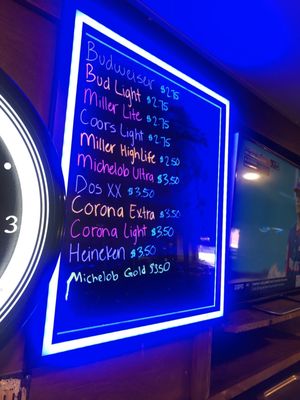 Budweiser $2.75
Bud Light $2.75
Miller Lite $2.75
Coors Light $2.75
Miller HighLife $2.50
Michelob Ultra $3.50
Dos XX $3.50
Corona Extra $3.50
Corona Light $3.50
Heineken $3.50
Michelob Gold $3.50
3